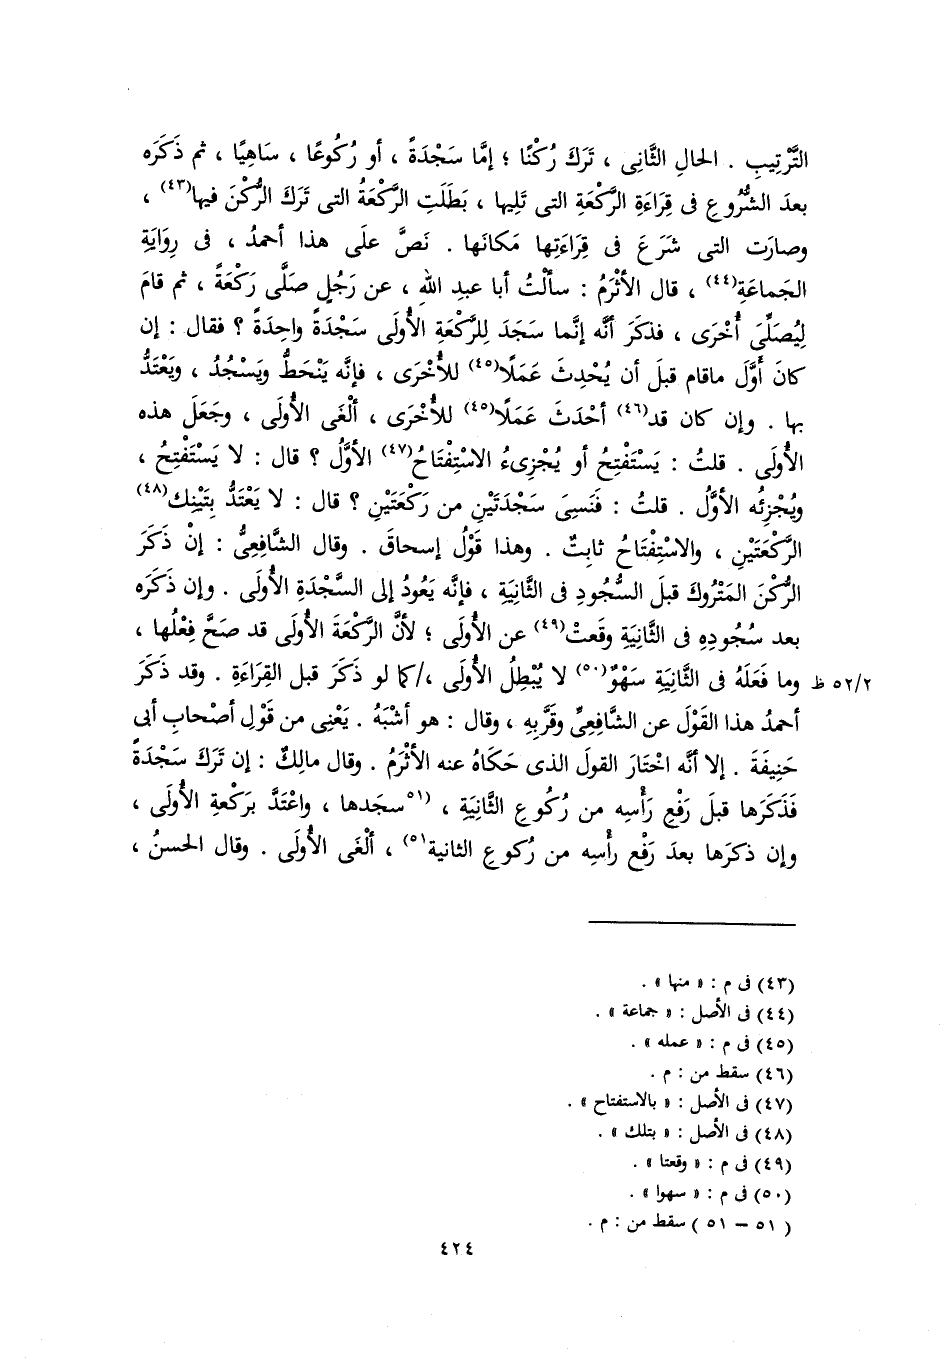 التَّرْتِيبِ . الحال الثَّانِى ، تَرَكَ رُكْنًا ؛ إمَّا سَجْدَةً ، أو رُكُوعًا ، سَاهِيًا ، ثم ذَكَرَه
بعدَ الشُّرُوعِ فى قِرَاءَةِ الرَّكْعَةِ التى تَلِيها ، بَطَلَتِ الرَّكْعَةُ التى تَرَكَ الرُّكْنَ فيها(٤٣) ،
وصارَت التى شَرَعَ فى قِرَاءَتِها مَكانَها . نَصَّ علَى هذا أحمدُ ، فى رِوَايَةِ
الجَماعَةِ(٤٤) ، قال الأثْرَمُ : سألْتُ أبا عبدِ اللهِ ، عن رَجُلٍ صلَّى رَكْعَةً ، ثم قامَ
لِيُصَلِّىَ أُخْرَى ، فذكَرَ أنَّه إنَّما سَجَدَ لِلرَّكْعَةِ الأُولَى سَجْدَةً واحِدَةً ؟ فقال : إن
كانَ أَوَّلَ ماقام قبلَ أن يُحْدِثَ عَمَلًا(٤٥) للأُخْرَى ، فإنَّه يَنْحَطُّ ويَسْجُدُ ، ويَعْتَدُّ
بها . وإن كان قد(٤٦) أحْدَثَ عَمَلًا(٤٥) للأُخْرَى ، ألْغَى الأُولَى ، وجَعَلَ هذه
الأُولَى . قلتُ : يَسْتَفْتِحُ أو يُجْزِىءُ الاسْتِفْتَاحُ(٤٧) الأوَّلُ ؟ قال : لا يَسْتَفْتِحُ ،
ويُجْزِئُه الأوَّلُ . قلتُ : فَنَسِىَ سَجْدَتَيْنِ من رَكْعَتَيْنِ ؟ قال : لا يَعْتَدُّ بِتَيْنِك(٤٨)
الرَّكْعَتَيْنِ ، والاسْتِفْتَاحُ ثابِتٌ . وهذا قَوْلُ إسحاقَ . وقال الشَّافِعِىُّ : إنْ ذَكَرَ
الرُّكْنَ المَتْرُوكَ قبلَ السُّجُودِ فى الثَّانِيَةِ ، فإنَّه يَعُودُ إلى السَّجْدَةِ الأُولَى . وإن ذَكَرَه
بعد سُجُودِهِ فى الثَّانِيَةِ وقَعتْ(٤٩) عن الأُولَى ؛ لأنَّ الرَّكْعَةَ الأُولَى قد صَحَّ فِعْلُها ،
٥٢/٢ ظ وما فَعَلَهُ فى الثَّانِيَةِ سَهْوٌ(٥٠) لا يُبْطِلُ الأُولَى ،/كما لو ذَكَرَ قبل القِرَاءَةِ . وقد ذَكَرَ
أحمدُ هذا القَوْلَ عن الشَّافِعِىِّ وقَرَّبَه ، وقال : هو أشْبَهُ . يَعْنِى من قَوْلِ أصْحابِ أبى
حَنِيفَةَ . إلا أنَّه اخْتَارَ القولَ الذى حَكَاهُ عنه الأثْرَمُ . وقال مالِكٌ : إن تَرَكَ سَجْدَةً
فَذَكَرَها قبلَ رَفْعِ رَأْسِه من رُكُوعِ الثَّانِيَةِ ، (٥١سجَدها ، واعْتَدَّ بَركْعةِ الأُولَى ،
وإن ذكرَها بعدَ رَفْعِ رأْسِه من رُكوعِ الثانية٥١) ، ألْغَى الأُولَى . وقال الحسنُ ،
(٤٣) فى م : « منها » .
(٤٤) فى الأصل : « جماعة » .
(٤٥) فى م : « عمله » .
(٤٦) سقط من : م .
(٤٧) فى الأصل : « بالاستفتاح » .
(٤٨) فى الأصل : « بتلك » .
(٤٩) فى م : « وقعتا » .
(٥٠) فى م : « سهوا » .
( ٥١ – ٥١ ) سقط من : م .
٤٢٤